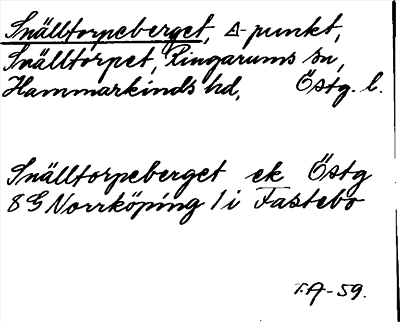 Snälltorpeberget, Δ-punkt,
Snälltorpet, Ringarums sn,
Hammarkinds hd, Östg. l.
Snälltorpeberget ek Östg
8G Norrköping 1i Fastebo
T.A-59.